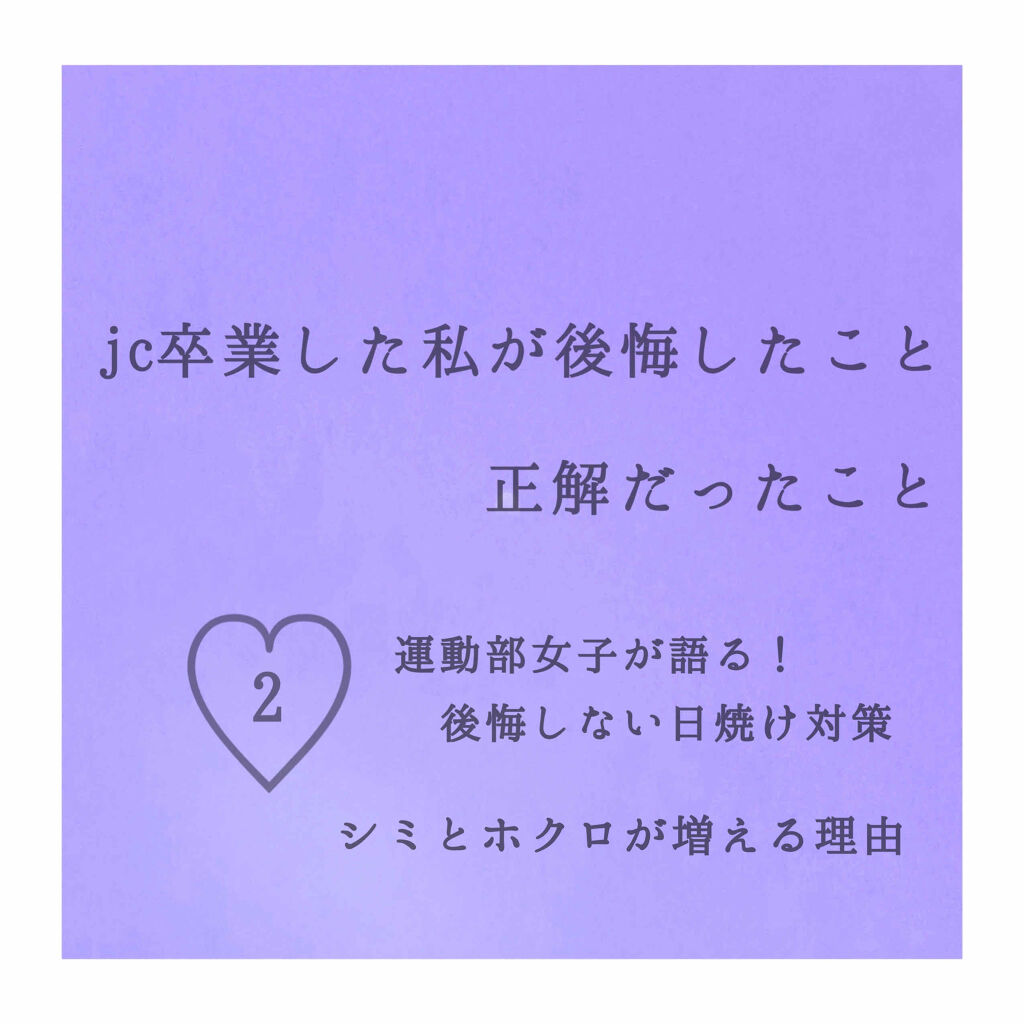 jc卒業した私が後悔したこと
正解だったこと
2
運動部女子が語る！
後悔しない日焼け対策
シミとホクロが増える理由